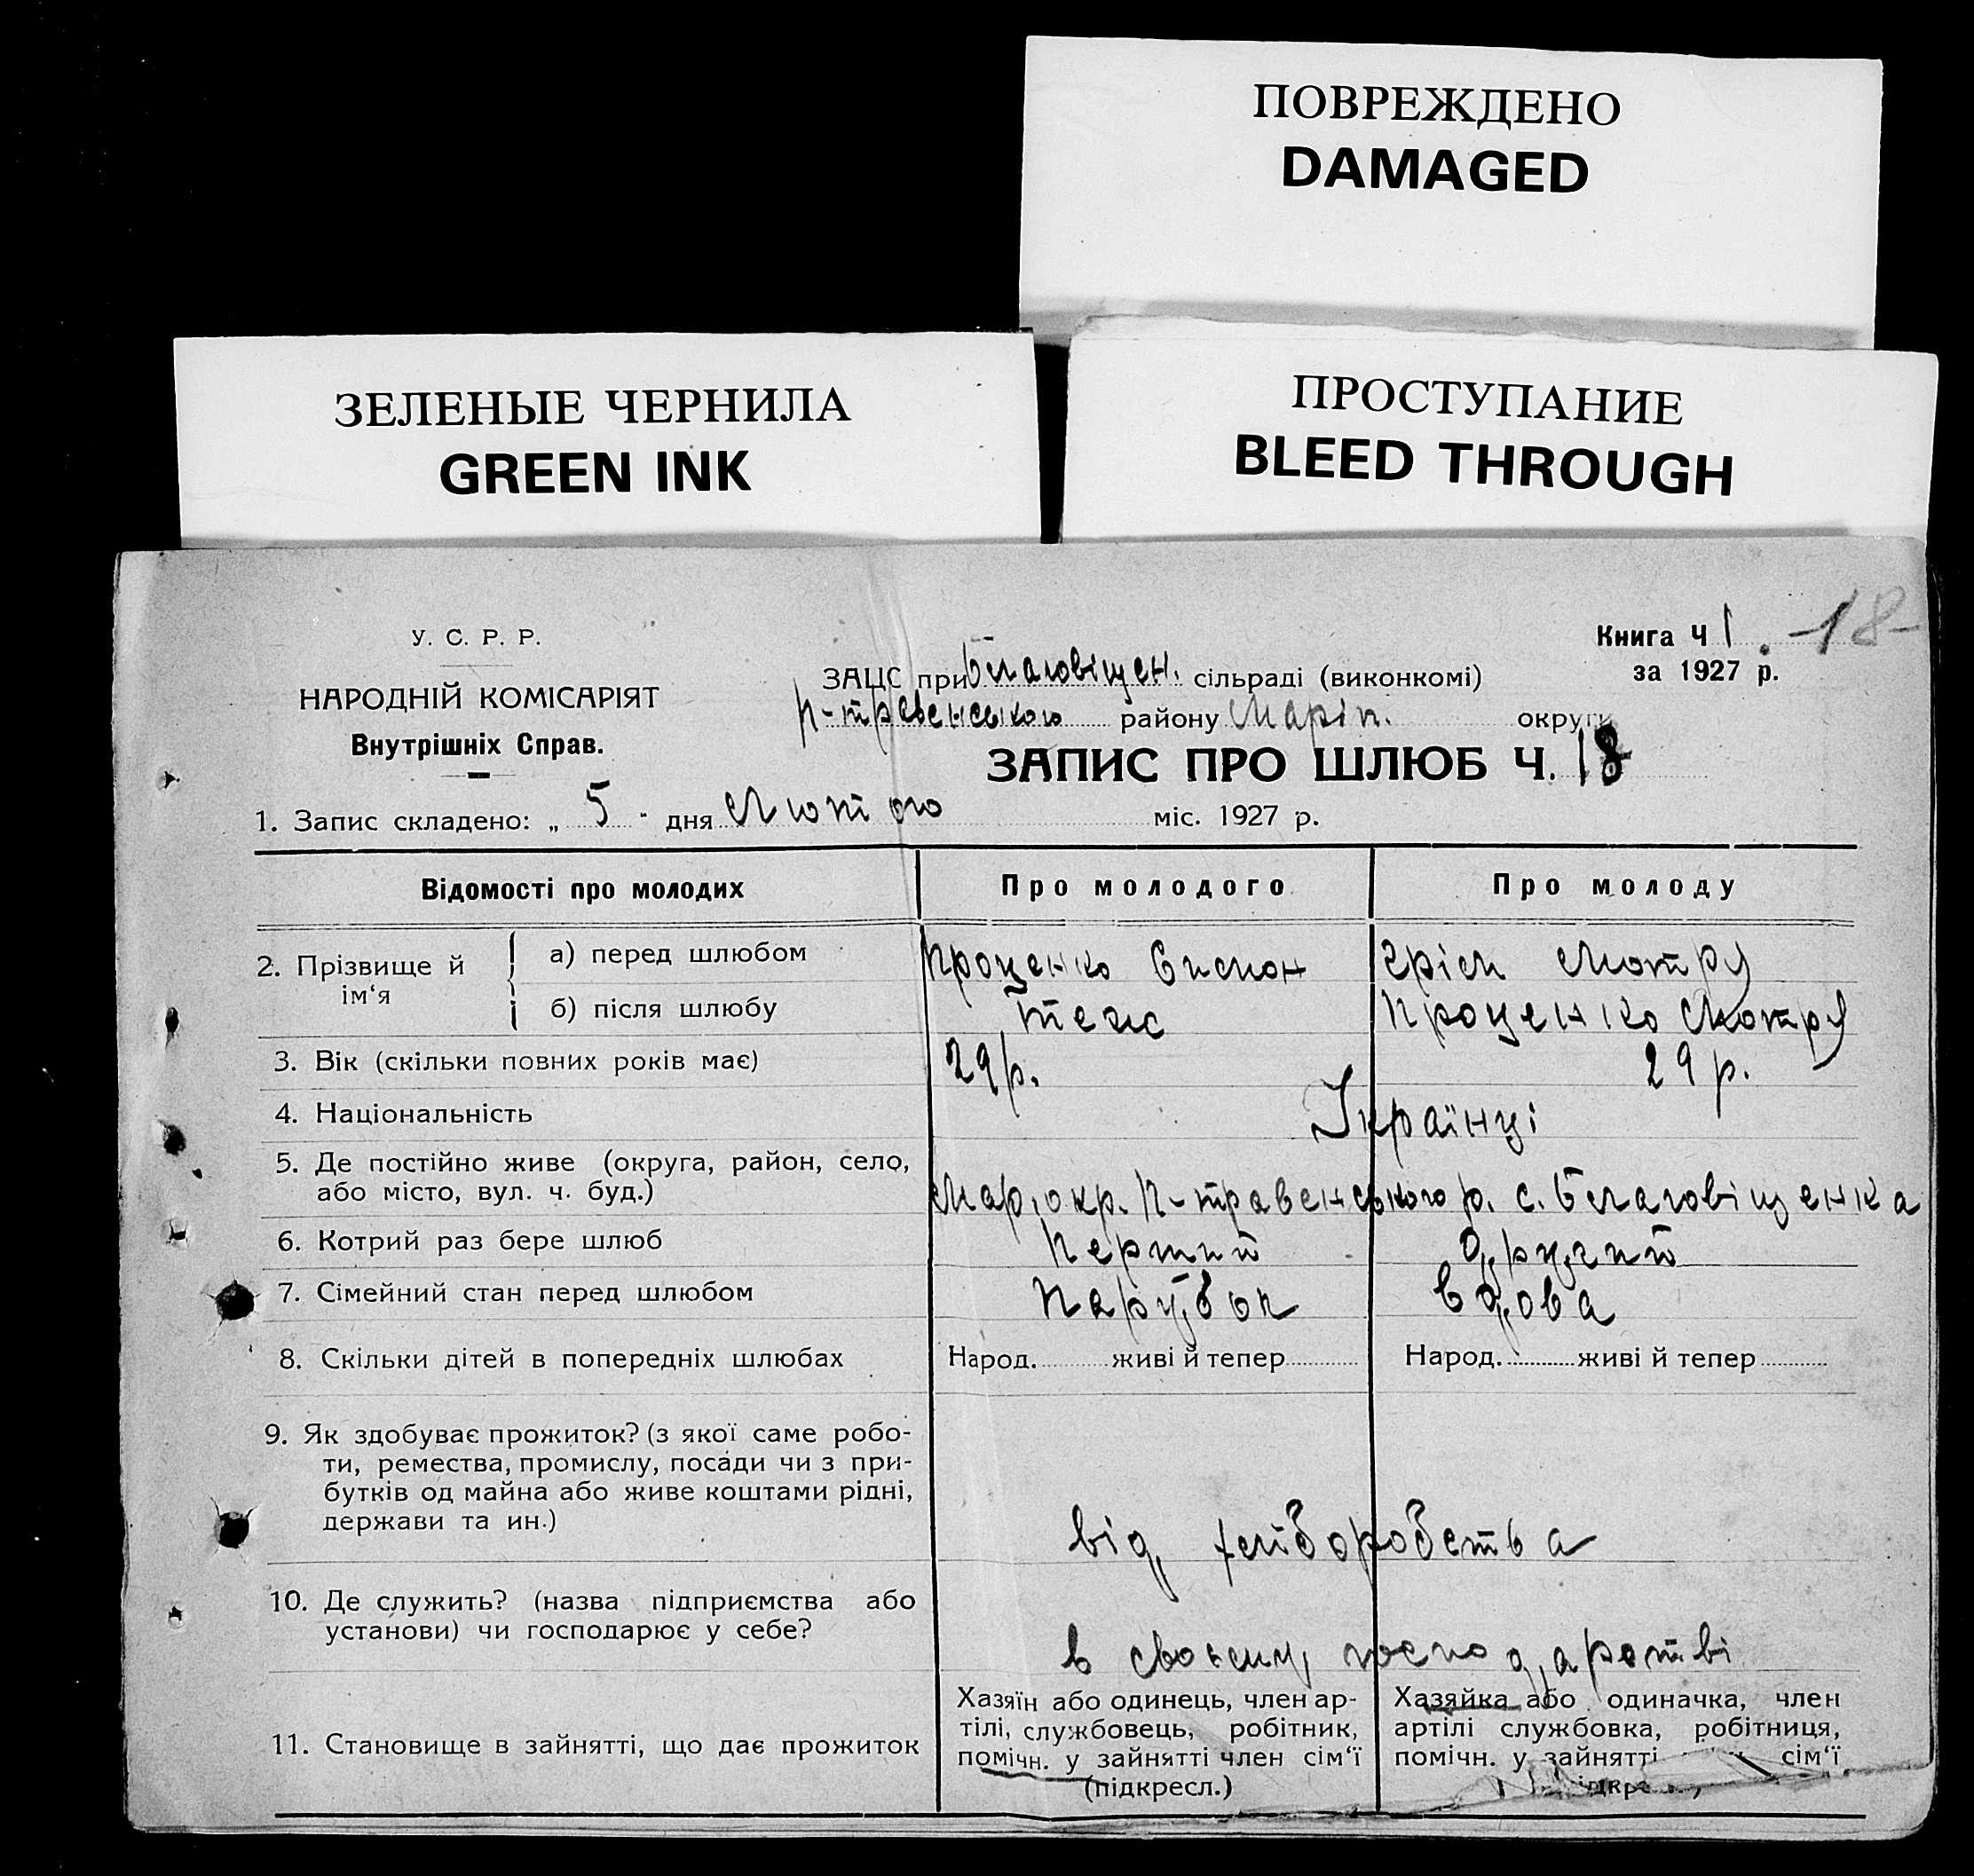 ПОВРЕЖДЕНО
DAMAGED
ЗЕЛЕНЫЕ ЧЕРНИЛА
GREEN INK
ПРОСТУПАНИЕ
BLEED THROUGH
У. С. Р. Р.
НАРОДНІЙ КОМІСАРІЯТ
Внутрішніх Справ.
Книга Ч 1. 18
за 1927 р.
ЗАЦС при Благовіщен. сільраді (виконкомі)
П-травенського району Маріп. округи
ЗАПИС ПРО ШЛЮБ Ч. 18
1. Запис складено: „ 5 " дня Лютого міс. 1927 р.
Відомості про молодих Про молодого Про молоду
2. Прізвище й ім‘я
а) перед шлюбом Проценко Мотря
б) після шлюбу теж Проценко Мотря
3. Вік (скільки повних років має) 29 р. 29 р.
4. Національність Українці
5. Де постійно живе (округа, район, село,
або місто, вул. ч. буд.) Мар. окр. П-травенського р. с. Благовіщенка
6. Котрий раз бере шлюб Перший другий
7. Сімейний стан перед шлюбом Парубок вдова
8. Скільки дітей в попередніх шлюбах Народ. живі й тепер Народ. живі й тепер
9. Як здобуває прожиток? (з якої саме робо-
ти, ремества, промислу, посади чи з при-
бутків од майна або живе коштами рідні,
держави та ин.)
від хліборобства
10. Де служить? (назва підприємства або
установи) чи господарює у себе?
в своєму господарстві
11. Становище в зайнятті, що дає прожиток
Хазяїн або одинець, член ар-
тілі, службовець, робітник,
помічн. у зайнятті член сім‘ї
(підкресл.)
Хазяйка або одиначка, член
артілі службовка, робітниця,
помічн. у зайнятті сім‘ї